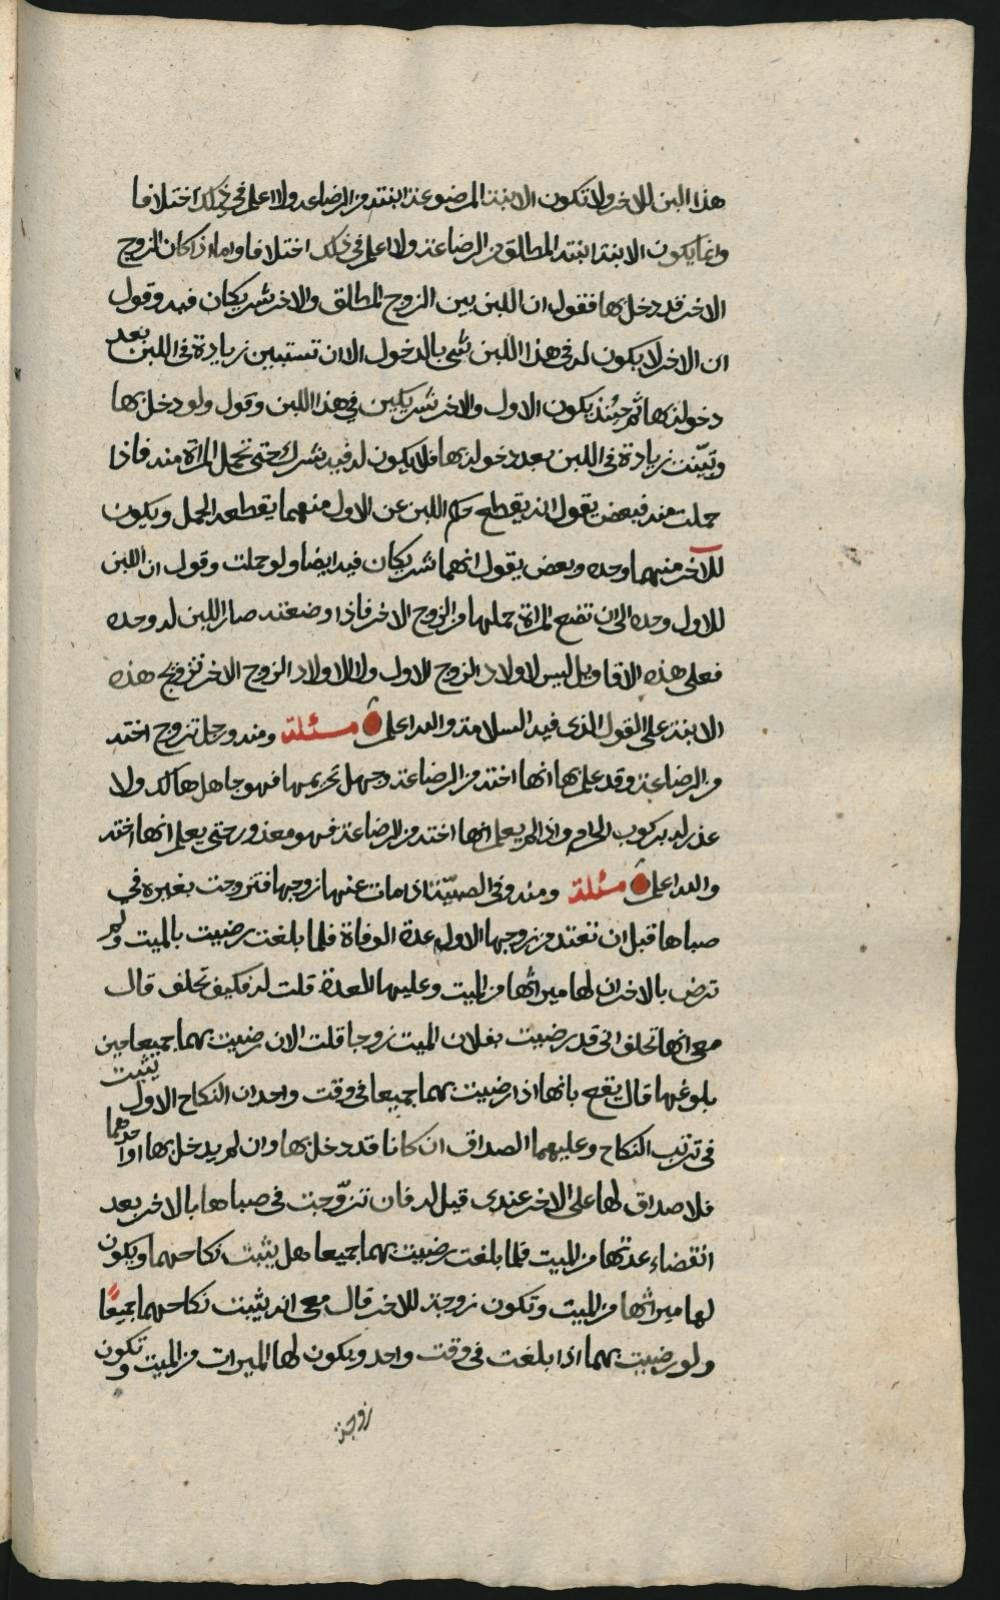 هذا البن للاخر ولا تكون الابنة المرضوعة ابنته من الرضاعة ولا اعلم في ذلك اختلافا
وانما يكون الابنة ابنته المطلق من الرضاعة ولا اعلم في ذلك اختلافا واما اذا كان الزوج
الاخر قد دخل بها فقول ان اللبن بين الزوج المطلق والاخر شريكان فيه وقول
ان الاخر لا يكون له في هذا اللبن شي بالدخول الا ان تستبين زيادة في اللبن بعد
دخوله بها ثم حينئذ يكون الاول والاخر شريكين في هذا اللبن وقول ولو دخل بها
وتبيّنت زيادة في اللبن بعد دخوله بها فلا يكون له فيه شرك حتى تحمل المراة منه فاذا
حملت منه فبعض يقول انه يقطع حكم اللبن عن الاول منهما يقطعه الحمل ويكون
للآخر منهما وحده وبعض يقول انهما شريكان فيه ايضا ولو حملت وقول ان اللبن
للاول وحده الى ان تضع المراة حملها من الزوج الاخر فاذا وضعته صار اللبن له وحده
فعلى هذه الاقاويل ليس لاولاد الزوج الاول ولا لاولاد الزوج الاخر تزويج هذه
الابنة على القول الذى فيه السلامة والله اعلم مسئلة ومنه ورجل تزوج اخته
من الرضاعة وقد علم بها انها اخته من الرضاعة وجهل تحريمها فهو جاهل هالك ولا
عذر له بركوب الحرام واذا لم يعلم انها اخته من الرضاعة فهو معذور حتى يعلم انها اخته
والله اعلم مسئلة ومنه وفى الصبيّة اذا مات عنها زوجها فتزوجت بغيره في
صباها قبل ان تعتد من زوجها الاول عدة الوفاة فلما بلغت رضيت بالميت ولم
ترض بالاخر ان لها ميراثها من الميت وعليها العدة قلت له فكيف تحلف قال
معى انها تحلف انى قد رضيت بفلان الميت زوجا قلت الان رضيت بهما جميعا حين
بلوغها قال يقع بانها اذا رضيت بهما جميعا فى وقت واحد ان النكاح الاول يثبت
فى ترتب النكاح وعليهما الصداق ان كانا قد دخل بها وان لم يدخل بها او احدهما
فلا صداق لها على الاخر عندى قيل له فان تزّوجت فى صباها بالاخر بعد
انقضاء عدتها من الميت فلما بلغت رضيت بهما جميعا هل يثبت نكاحهما ويكون
لها ميراثها من الميت وتكون زوجة للاخر قال معى انه يثبت نكاحهما جميعًا
ولو رضيت بهما اذا بلغت فى وقت واحد ويكون لها الميراث من الميت وتكون
زوجة